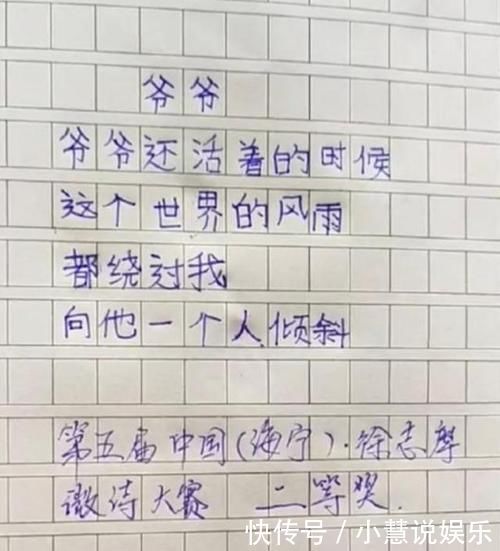 爷爷
爷爷还活着的时候
这个世界的风雨
都绕过我
向他一个人倾斜
第五届中国(海宁)·徐志摩
微诗大赛 二等奖.
快传号/小慧说娱乐